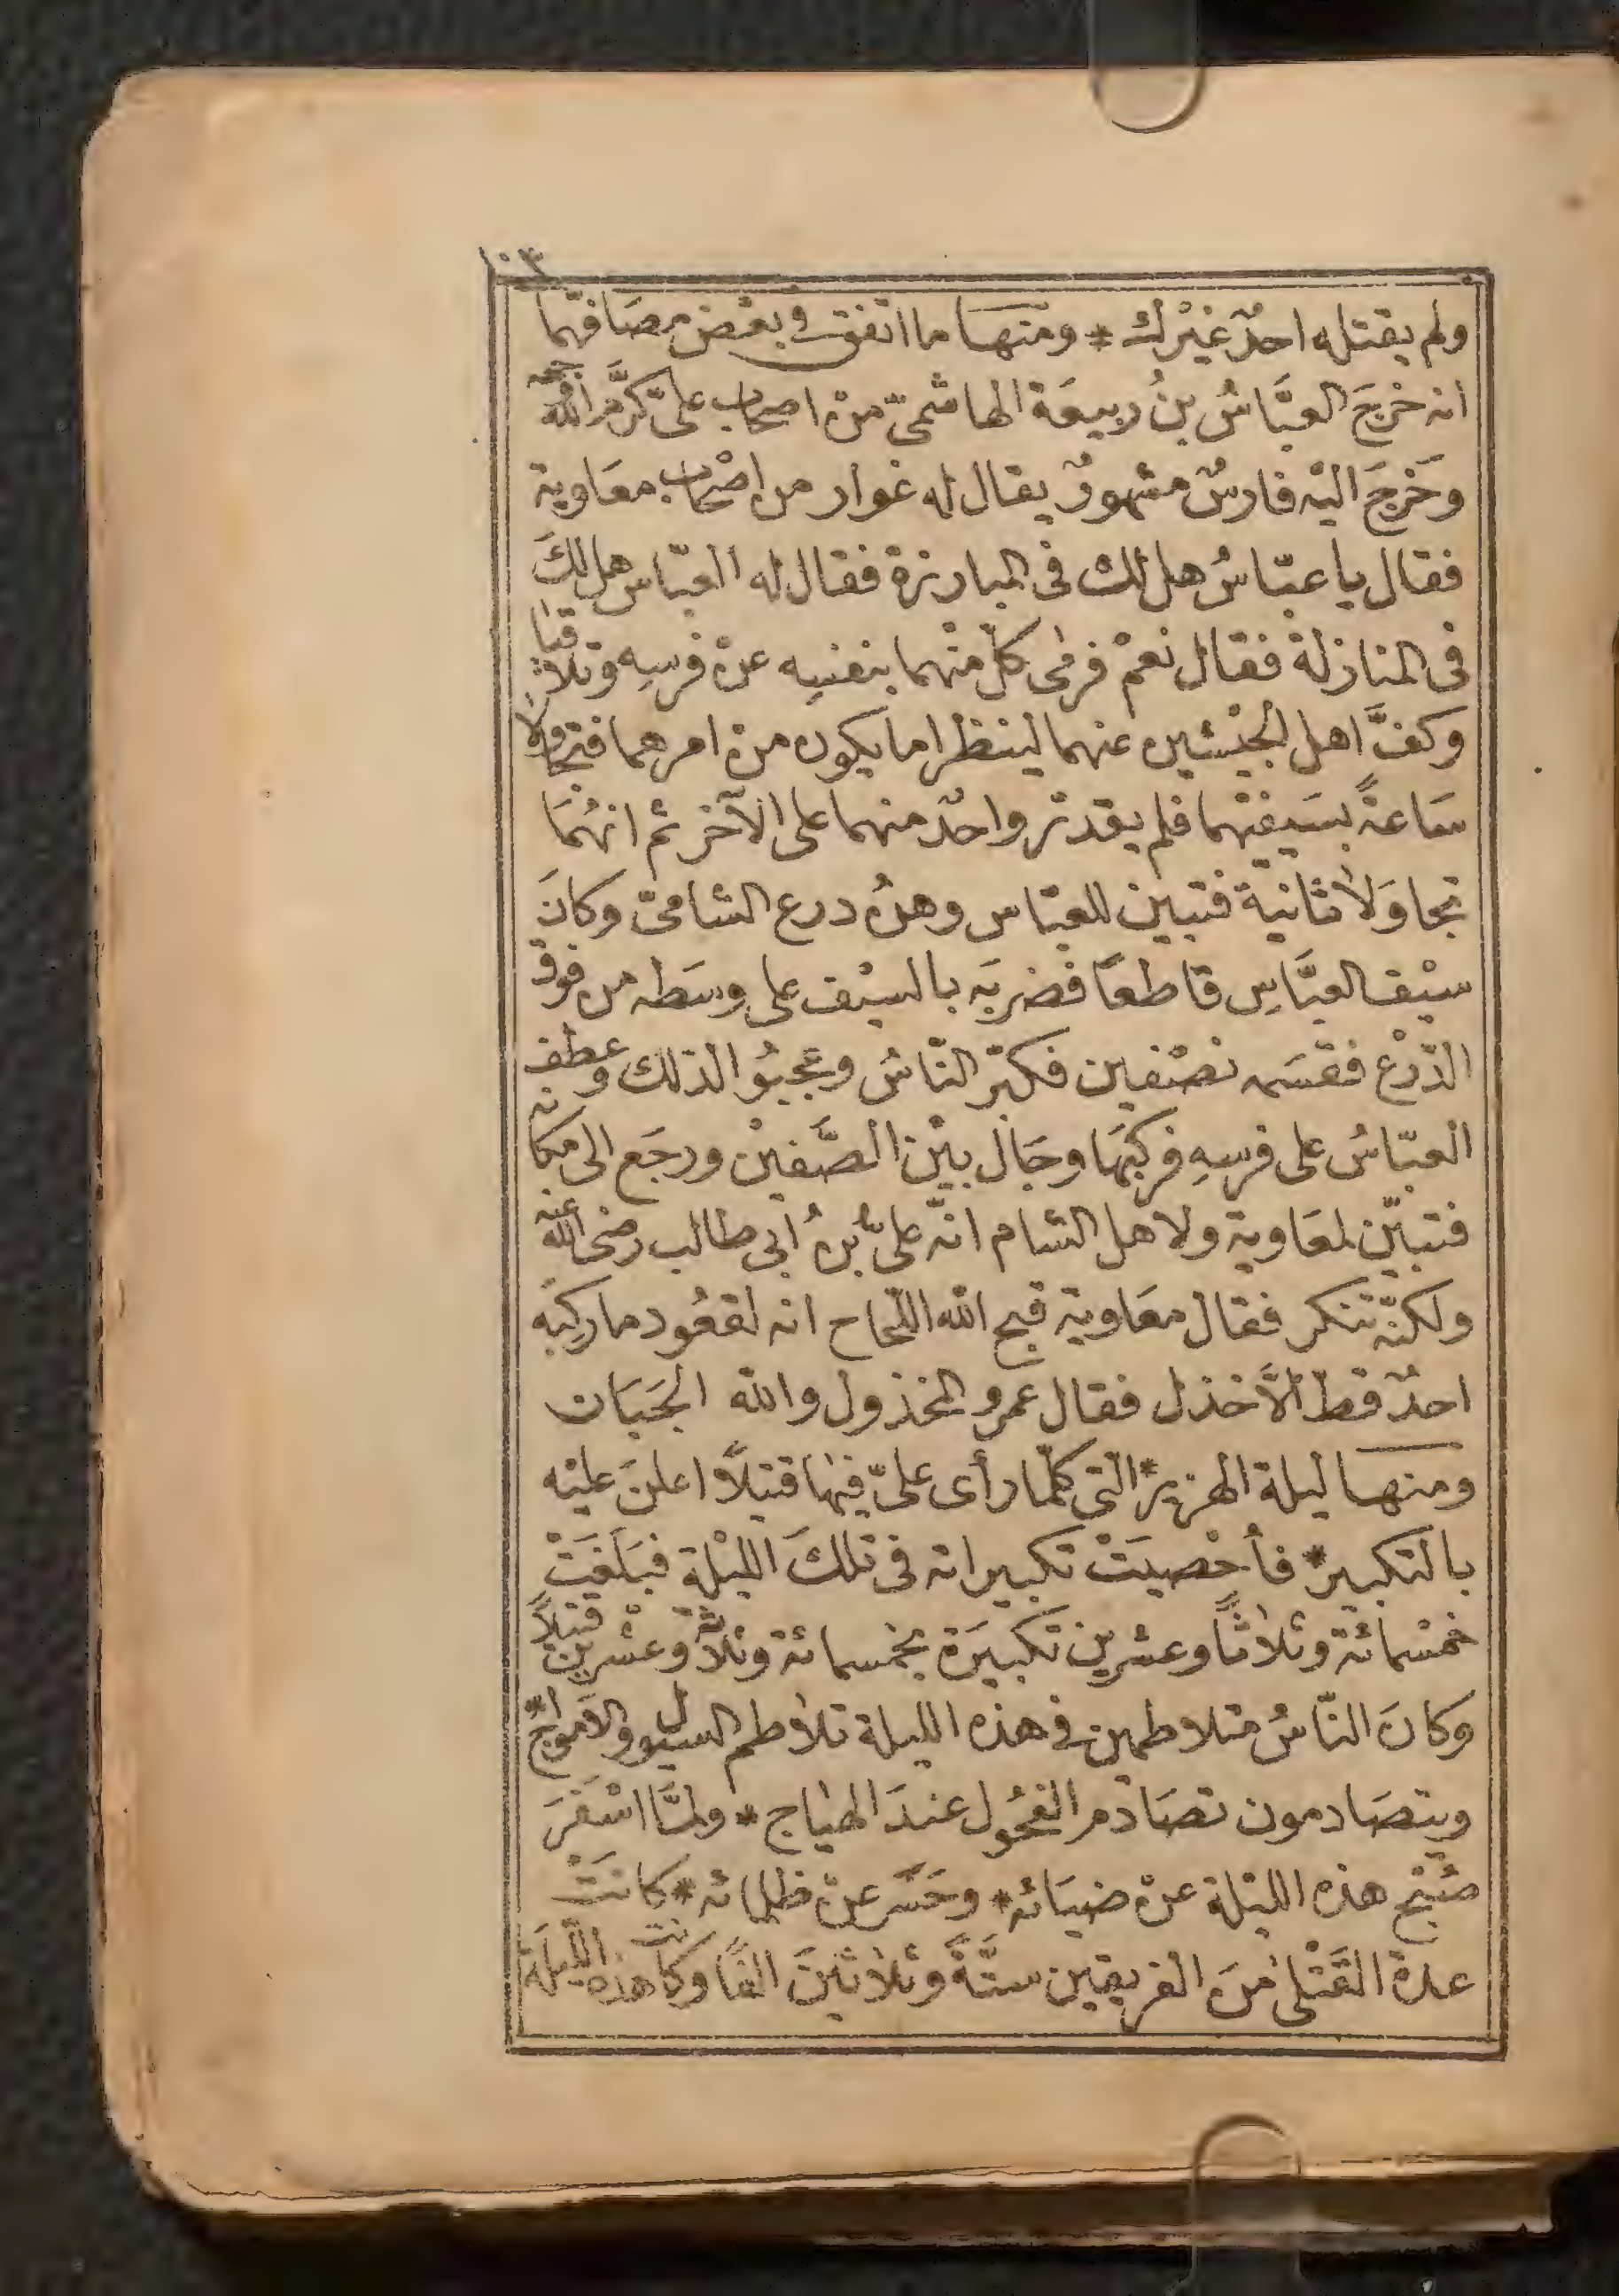 ١٠٣
ولم يقتله احدٌ غيْرك * ومنها ما اتفق في بعْض مصَافّهما
انه خرَجَ العبَّاسُ بنُ ربيعَة الهاشميّ منْ اصحاب علىّ كرَّم اللّه وجهه
وَخرَجَ اليْه فارسٌ مشهورٌ يقال له غوار من اصْحاب معَاوية
فقال يا عبّاسُ هل لك فى المبارزة فقال له العبّاس هل لكَ
فى المنازلة فقال نعمْ فرمٰى كلّ منْهما بنفسِه عنْ فرسِه وتلاقيا
وكفَّ اهل الجيْشين عنهما لينظرا ما يكون منْ امرهما فتجاولا
سَاعةً بسَيفيْهما فلم يقدرْ واحدٌ منهما على الآخر ثم انهُمَا
تجاوَلا ثانيَة فتبين للعبّاس وهنُ درع الشامىّ وكانَ
سيْف العبَّاسِ قاطعًا فضربَه بالسيْف على وسَطه من فوق
الدّرْع فقسَمه نصْفين فكبّر النّاسُ وعجبُوا لذلك وعطف
العبّاسُ على فرسِهِ فركبَهَا وجَال بيْن الصَّفيْن ورجَع الى مكانه
فتبيّن لمعَاوية ولاهل الشام انّه علىّ بنُ أبى طالب رضى اللّه عنه
ولكنّه تنكر فقال معَاوية قبح اللّه اللّجاج انه لقعُود ما ركِبَه
احدٌ قطّ الاّ خذل فقال عمرو المخذول واللّه الجَبَان
ومنها ليلة الهرير * التى كلّما رأى علىّ فيهَا قتيلاً اعلنَ عليْه
بالتكبير * فأحْصيَتْ تكبيراته فى تلكَ الليْلة فبَلغَتْ
خمْسمائة وثلاثًا وعشرين تكبيرَة بخمسمائة وثلاثة وعشْرين قتيلاً
وَكانَ النّاسُ متلاطمين فى هذه الليلة تلاطم السيول والامواج *
ويتصَادمون تصَادُم الفحُول عندَ الهياج * ولمَّا اسْفَرَ
صُبْح هذه الليْلة عنْ ضيَائه * وحَسَر عنْ ظلمائه * كانَتْ
عدة القَتْلى منَ الفريقين ستَّةً وثلاثينَ الفًا وكانت هذه اللّيلَة